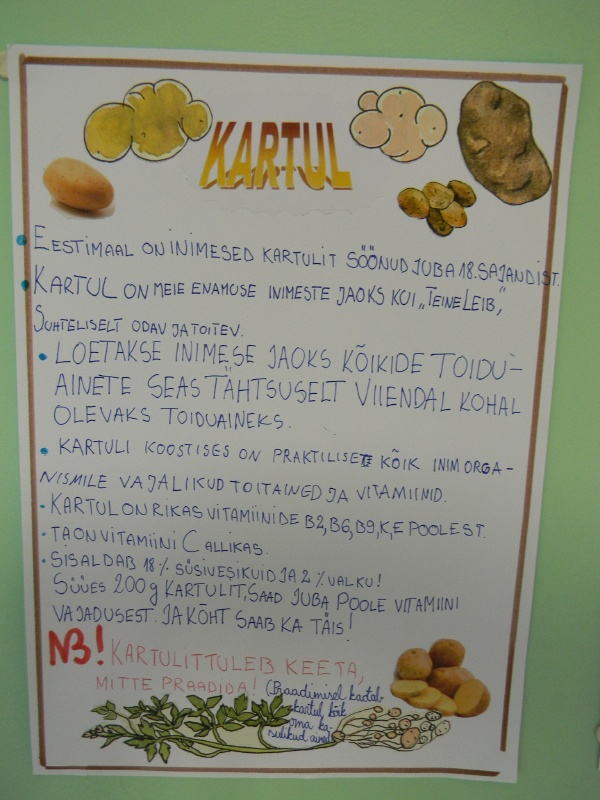 KARTUL
EESTIMAAL ON INIMESED KARTULIT SÖÖNUD JUBA 18. SAJANDIST.
KARTUL ON MEIE ENAMUSE INIMESTE JAOKS KUI „TEINE LEIB,"
SUHTELISELT ODAV JA TOITEV.
LOETAKSE INIMESE JAOKS KÕIKIDE TOIDU-
AINETE SEAS TÄHTSUSELT VIIENDAL KOHAL
OLEVAKS TOIDUAINEKS.
KARTULI KOOSTISES ON PRAKTILISELT KÕIK INIMORGA-
NISMILE VAJALIKUD TOITAINED JA VITAMIINID.
KARTUL ON RIKAS VITAMIINIDE B2, B6, B9, K, E POOLEST.
TA ON VITAMIINI C ALLIKAS.
SISALDAB 18% SÜSIVESIKUID JA 2% VALKU!
SÜÜES 200 g KARTULIT, SAAD JUBA POOLE VITAMIINI
VAJADUSEST. JA KÕHT SAAB KA TÄIS!
NB! KARTULIT TULEB KEETA,
MITTE PRAADIDA! (Praadimisel kaotab
kartul kõik
oma ka-
sulikud ained)